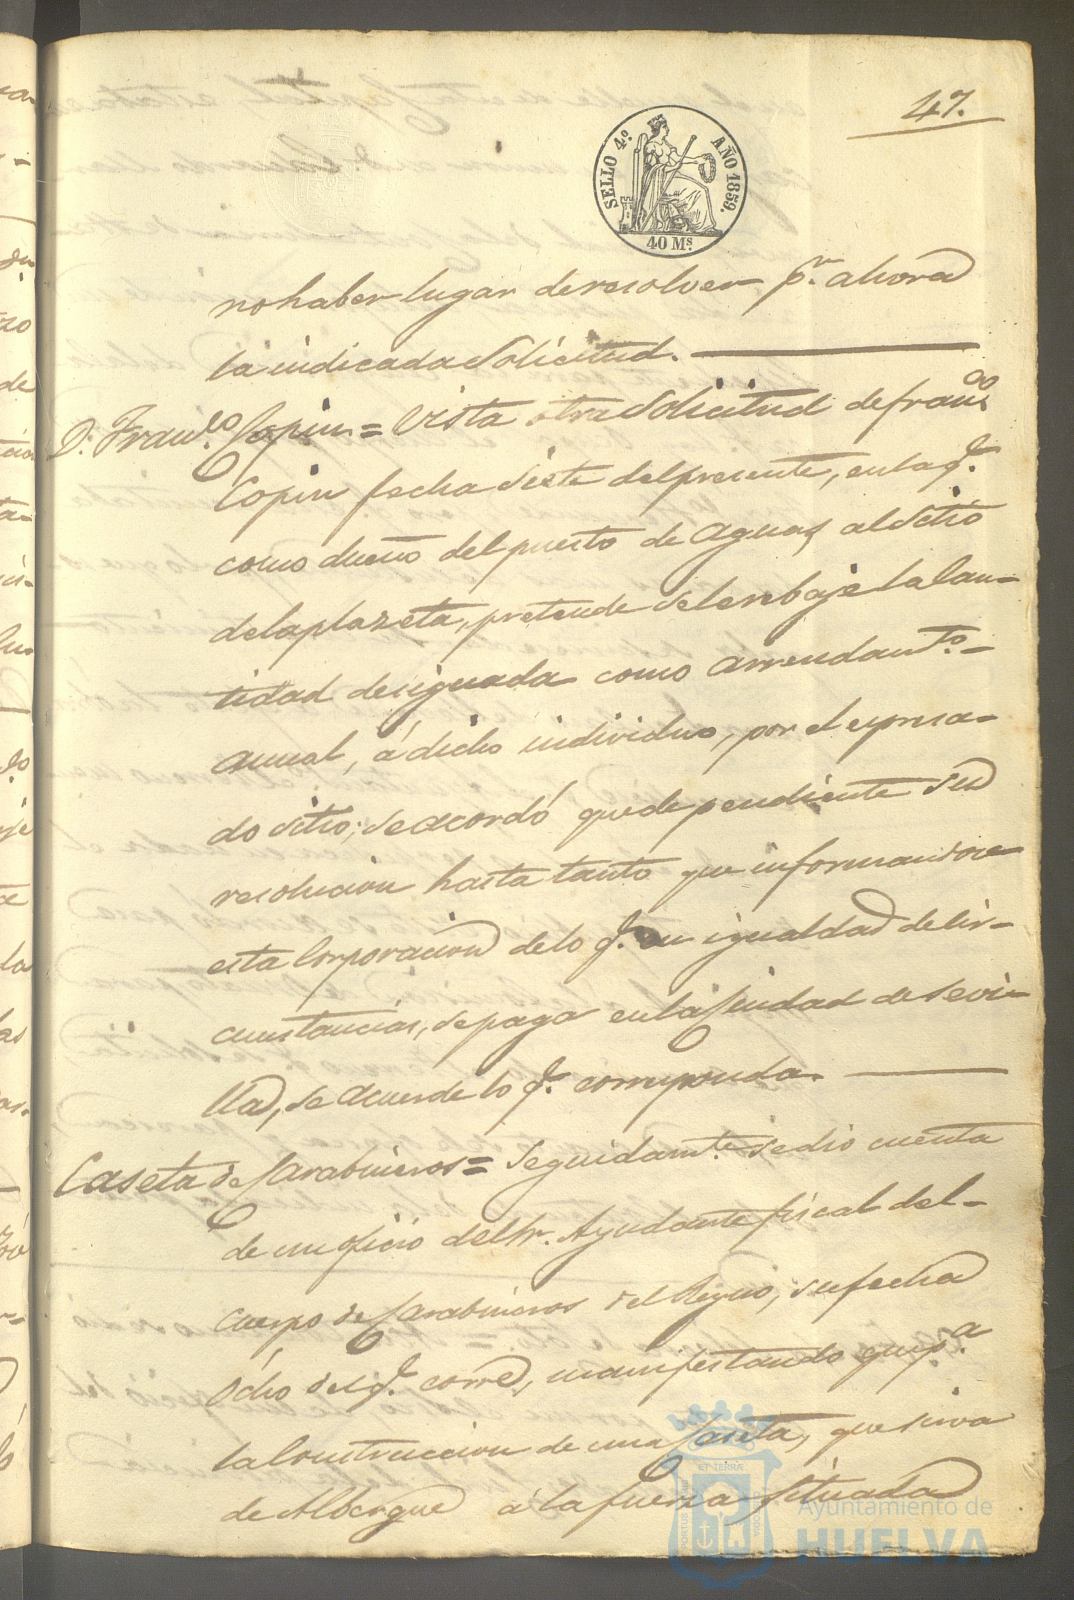 47.
SELLO 4.º AÑO 1859.
40 Ms.
no haber lugar de resolver pr. ahora
la indicada Solicitud.
D. Franco. Copin = Vista otra Solicitud de franco.
Copin fecha siete del presente, en la q.
como dueño del puesto de aguas, al Sitio
de la plazeta, pretende se le rebaje la Can-
tidad designada como arrendamto.-
anual, á dicho individuo, por el espresa-
do sitio; se acordó quede pendiente su
resolucion hasta tanto que informandose
esta Corporacion de lo q. en igualdad de Cir-
cunstancias, se paga en la Ciudad de Sevi-
lla, se acuerde lo q. corresponda.
Caseta de Carabineros = Seguidamte. se dio cuenta
de un oficio del Sr. Ayudante fiscal del-
Cuerpo de Carabineros del Reyno, su fecha
Ocho del q. corre, manifestando que pa.
la Construccion de una Caseta, que sirva
de Albergue á la fuerza situada
Ayuntamiento de
HUELVA